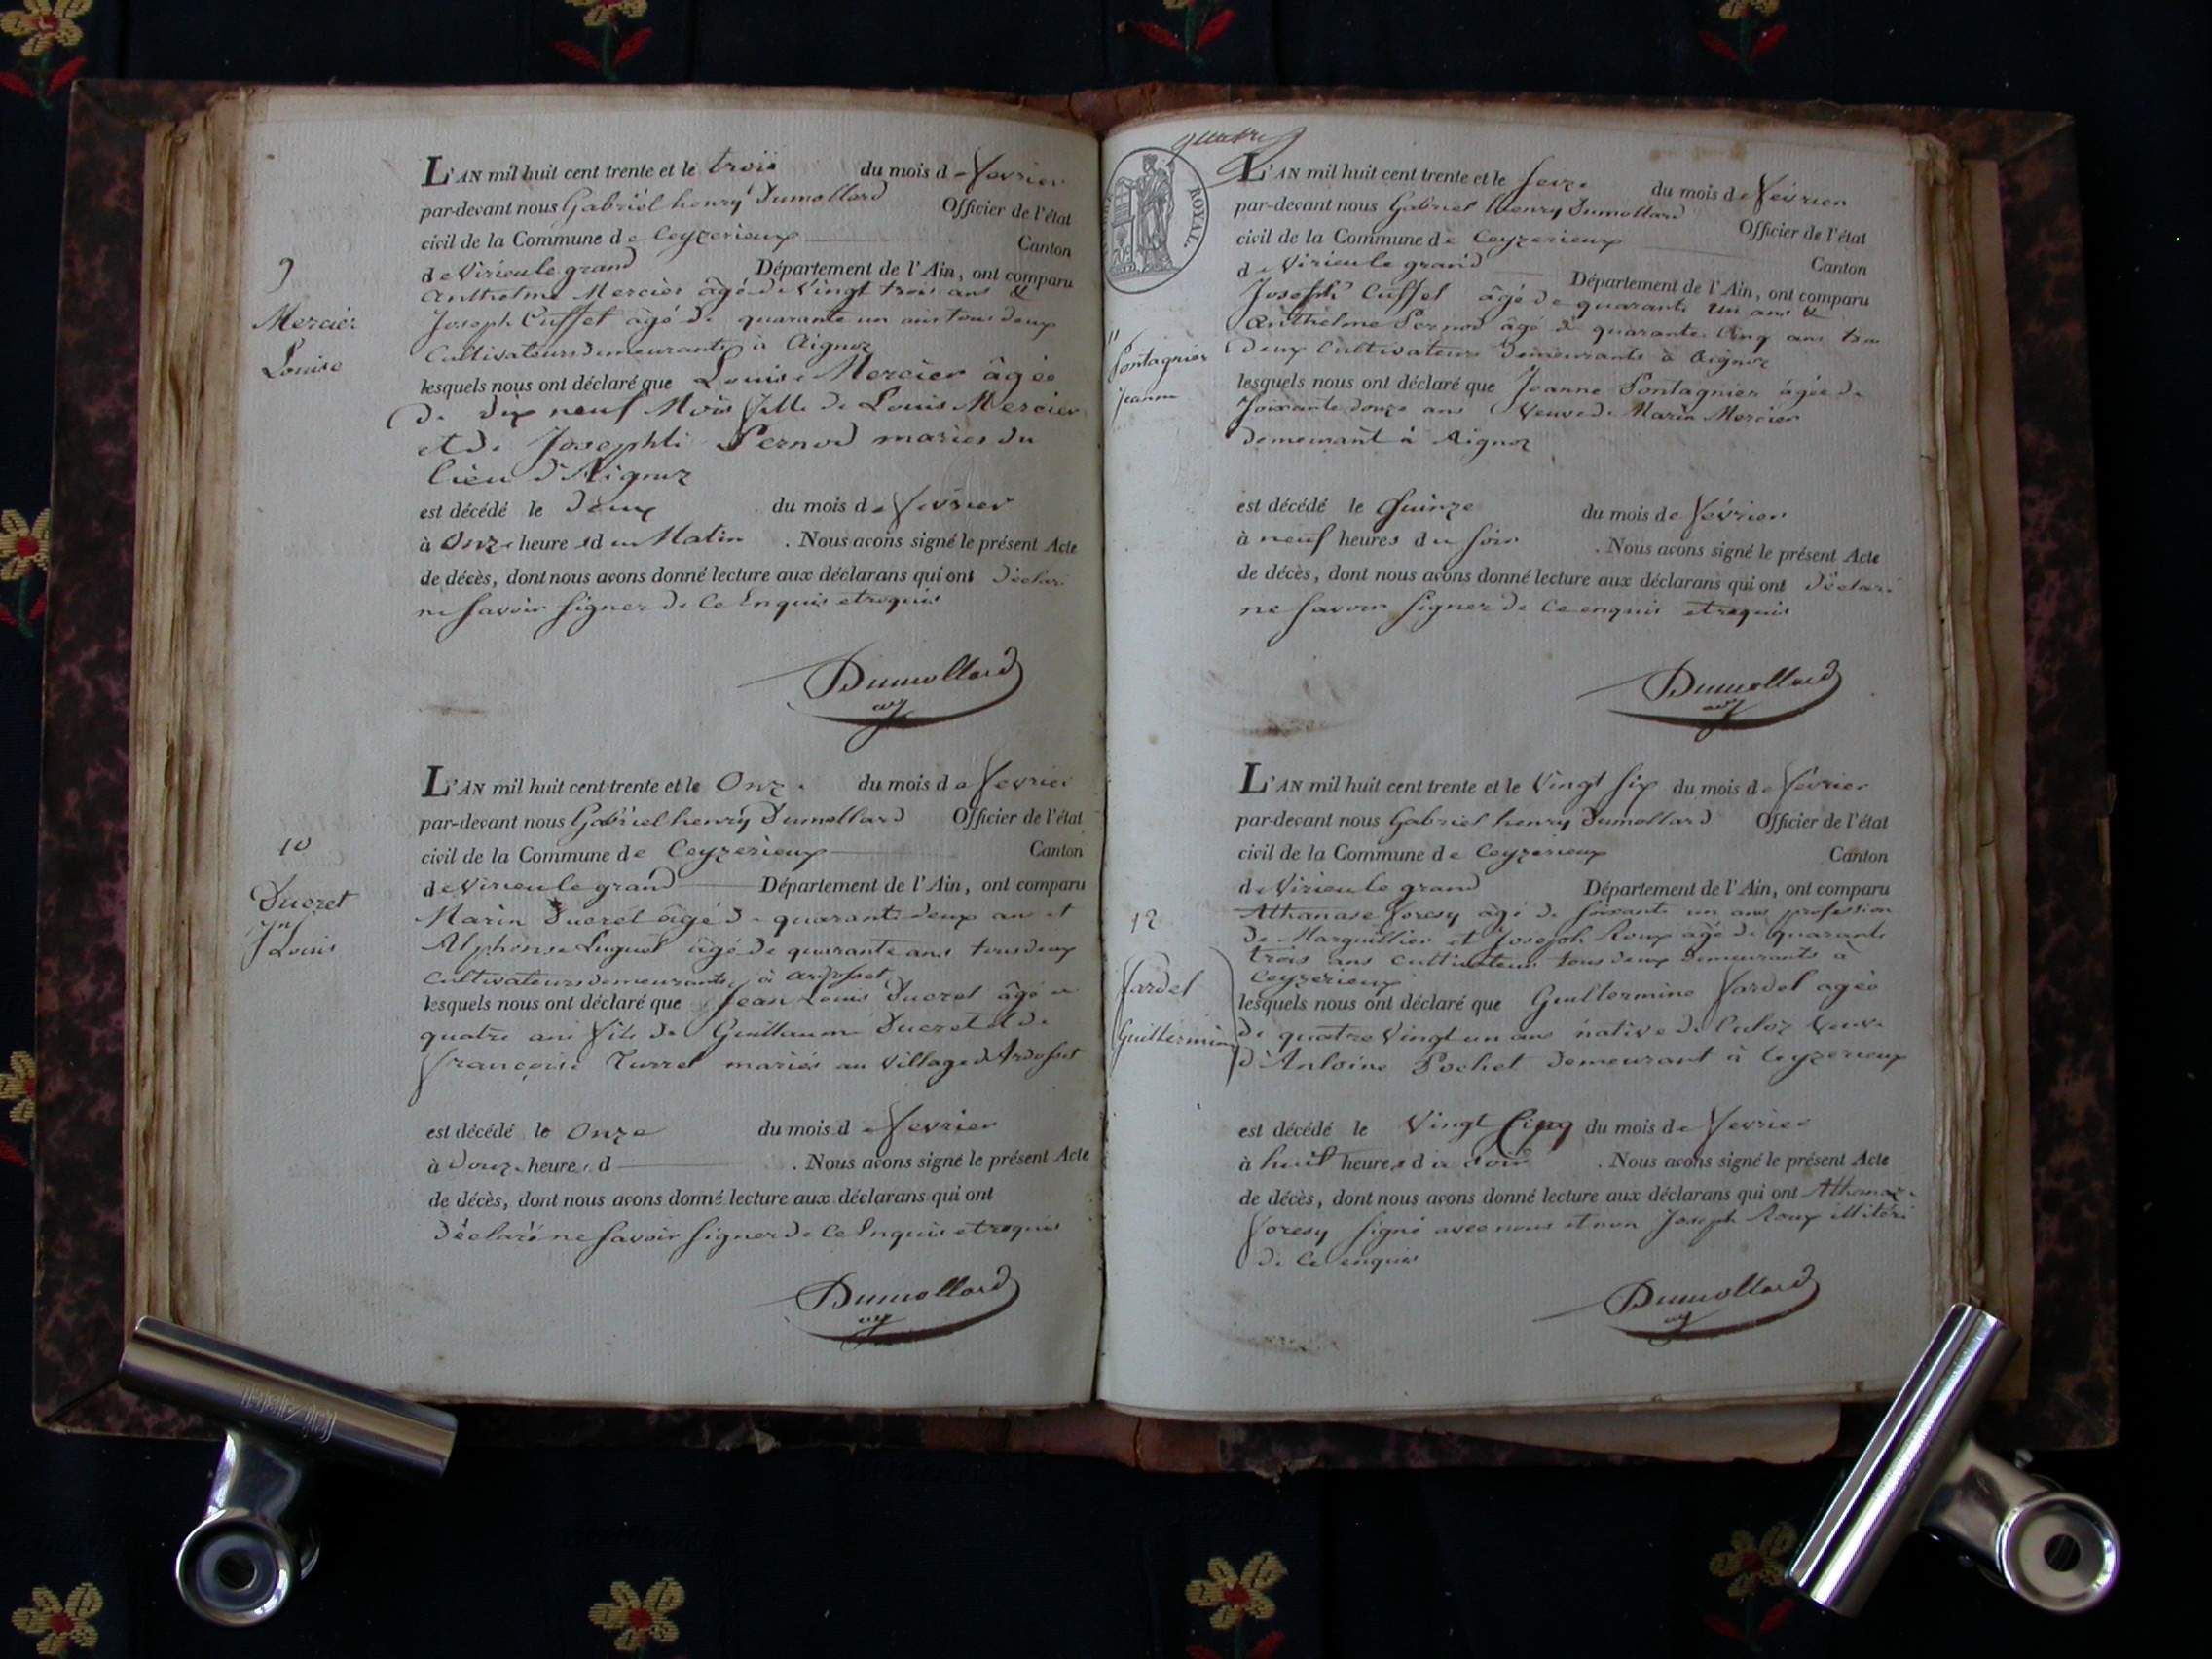 9
Mercier
Louise
L'AN mil huit cent trente et le trois du mois de fevrier
par-devant nous Gabriel henry Dumollard Officier de l'état
civil de la Commune de Ceyzerieux Canton
de Virieu le grand Département de l'Ain, ont comparu
Anthelme Mercier âgé de Vingt trois ans &
Joseph Cuffet âgé de quarante un ans tous deux
Cultivateurs demeurants à Aignoz
lesquels nous ont déclaré que Louise Mercier âgée
de dix neuf Mois fille de Louis Mercier
et de Josephte Pernod mariés du
lieu d'Aignoz
est décédé le Deux du mois de fevrier
à Onze heures du Matin . Nous avons signé le présent Acte
de décès, dont nous avons donné lecture aux déclarans qui ont déclaré
ne savoir signer de Ce Enquis et requis
Dumollard
10
Ducret
Jn
Louis
L'AN mil huit cent trente et le Onze du mois de fevrier
par-devant nous Gabriel henry Dumollard Officier de l'état
civil de la Commune de Ceyzerieux Canton
de Virieu le grand Département de l'Ain, ont comparu
Marin Ducret âgé de quarante deux ans et
Alphonse Luguet âgé de quarante ans tous deux
Cultivateurs demeurants à ardosset
lesquels nous ont déclaré que Jean Louis Ducret âgé de
quatre ans fils de Guillaume Ducret et de
françoise Turrel mariés au Village d'Ardosset
est décédé le Onze du mois de fevrier
à douze heures d . Nous avons signé le présent Acte
de décès, dont nous avons donné lecture aux déclarans qui ont
déclaré ne savoir signer de Ce Enquis et requis
Dumollard
quatre
ROYAL.
11
Pontagnier
Jeanne
L'AN mil huit cent trente et le seize du mois de février
par-devant nous Gabriel henry Dumollard Officier de l'état
civil de la Commune de Ceyzerieux Canton
de Virieu le grand Département de l'Ain, ont comparu
Joseph Cuffet âgé de quarante un ans &
Anthelme Pernod âgé de quarante Cinq ans tous
Deux Cultivateurs demeurants à Aignoz
lesquels nous ont déclaré que Jeanne Pontagnier âgée de
soixante douze ans Veuve de Marin Mercier
demeurant à Aignoz
est décédé le Quinze du mois de février
à neuf heures du soir . Nous avons signé le présent Acte
de décès, dont nous avons donné lecture aux déclarans qui ont déclaré
ne savoir signer de Ce enquis et requis
Dumollard
12
fardel
Guillermine
L'AN mil huit cent trente et le Vingt six du mois de février
par-devant nous Gabriel henry Dumollard Officier de l'état
civil de la Commune de Ceyzerieux Canton
de Virieu le grand Département de l'Ain, ont comparu
Athanase foresy âgé de soixante un ans profession
de Marguillier et Joseph Roux âgé de quarante
trois ans Cultivateur tous deux demeurants à
Ceyzerieux
lesquels nous ont déclaré que Guillermine fardel agée
de quatre Vingt un ans native de Culoz Veuve
d'Antoine Pochet demeurant à Ceyzerieux
est décédé le Vingt Cinq du mois de fevrier
à huit heures du soir . Nous avons signé le présent Acte
de décès, dont nous avons donné lecture aux déclarans qui ont Athanaze
foresy signé avec nous et non Joseph Roux illitéré
de Ce enquis
Dumollard